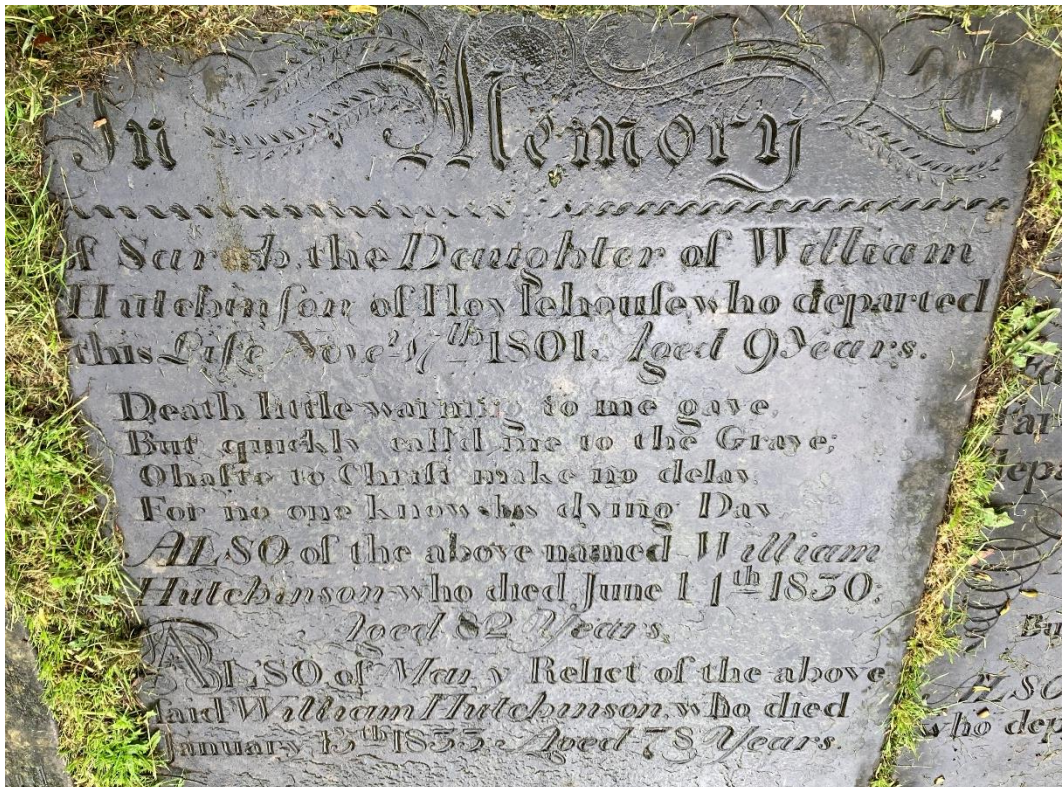 In Memory
of Sarah the Daughter of William
Hutchinſon of who departed
this Life Novr 17th 1801. Aged 9 Years.
Death little warning to me gave,
But quickly call'd me to the Grave;
O haſte to Chriſt make no delay
For no one knows his dying Day
ALSO of the above named William
Hutchinson who died June 11th 1830;
Aged 82 Years,
ALSO of Mary Relict of the above
ſaid William Hutchinson, who died
January 13th 1833 Aged 78 Years.
Bu
ALSO
who dep